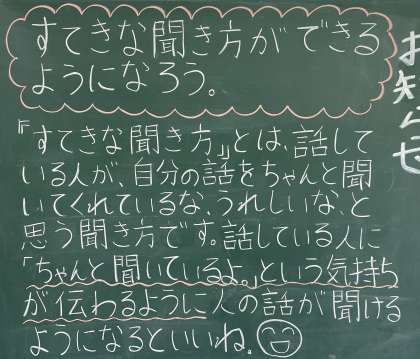 すてきな聞き方ができる
ようになろう。
『すてきな聞き方』とは、話して
いる人が、自分の話をちゃんと聞
いてくれているな、うれしいな、と
思う聞き方です。話している人に
「ちゃんと聞いているよ。」という気持ち
が伝わるように人の話が聞ける
ようになるといいね。
お知らせ